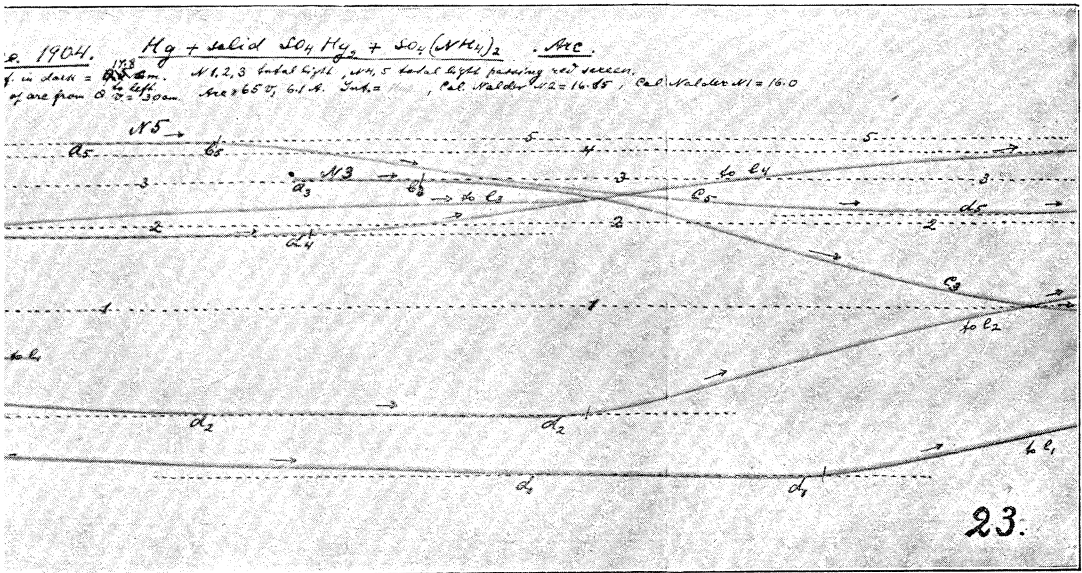 1904. Hg + solid SO4Hg2 + SO4(NH4)2. Arc.
in dark = 17.8 cm. N1,2,3 total light, N4,5 total light passing red screen,
of arc from to left = 30 cm. Arc = 65 V, 6.1 A. Int. = , Cal. Nalder N2 = 16.85, Cal. Nalder N1 = 16.0
N5 5 5
a5 b5 4
N3 to l4
3 a3 b3 3 3
to l3 c5 d5
2 2 2
d4
c3
1 1
to l2
to l1
d2 d2
to l1
d1 d1
23.